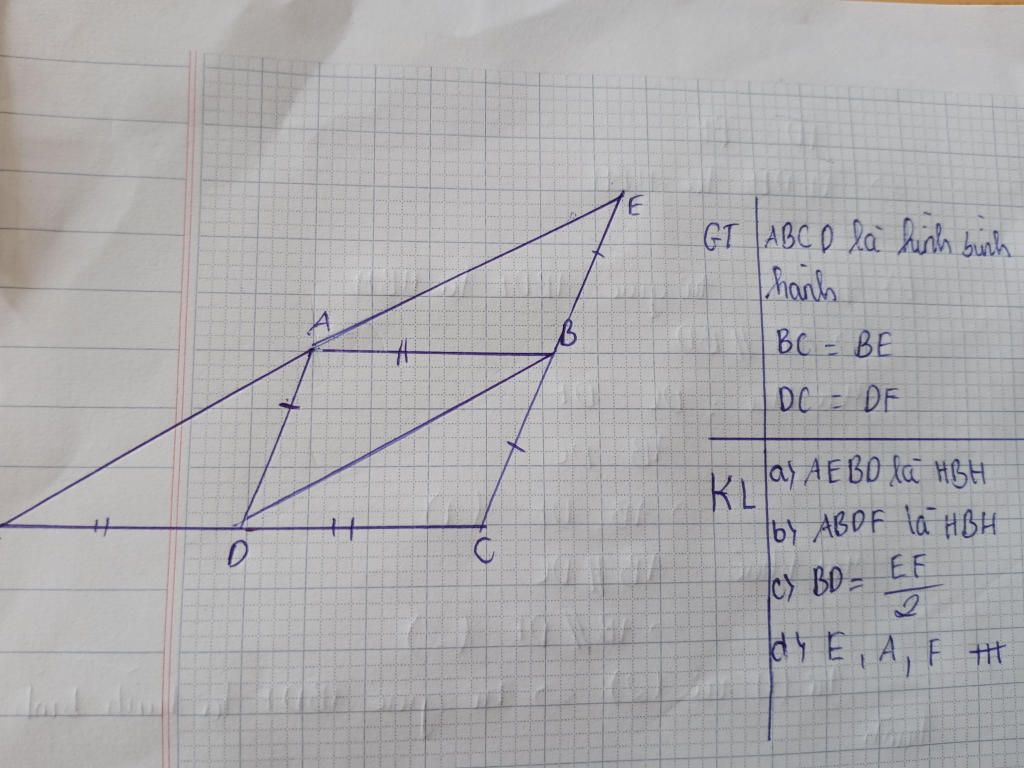 E
A
B
D
C
GT ABCD là hình bình
hành
BC = BE
DC = DF
KL a) AEBD là HBH
b) ABDF là HBH
c) BD = EF/2
d) E, A, F